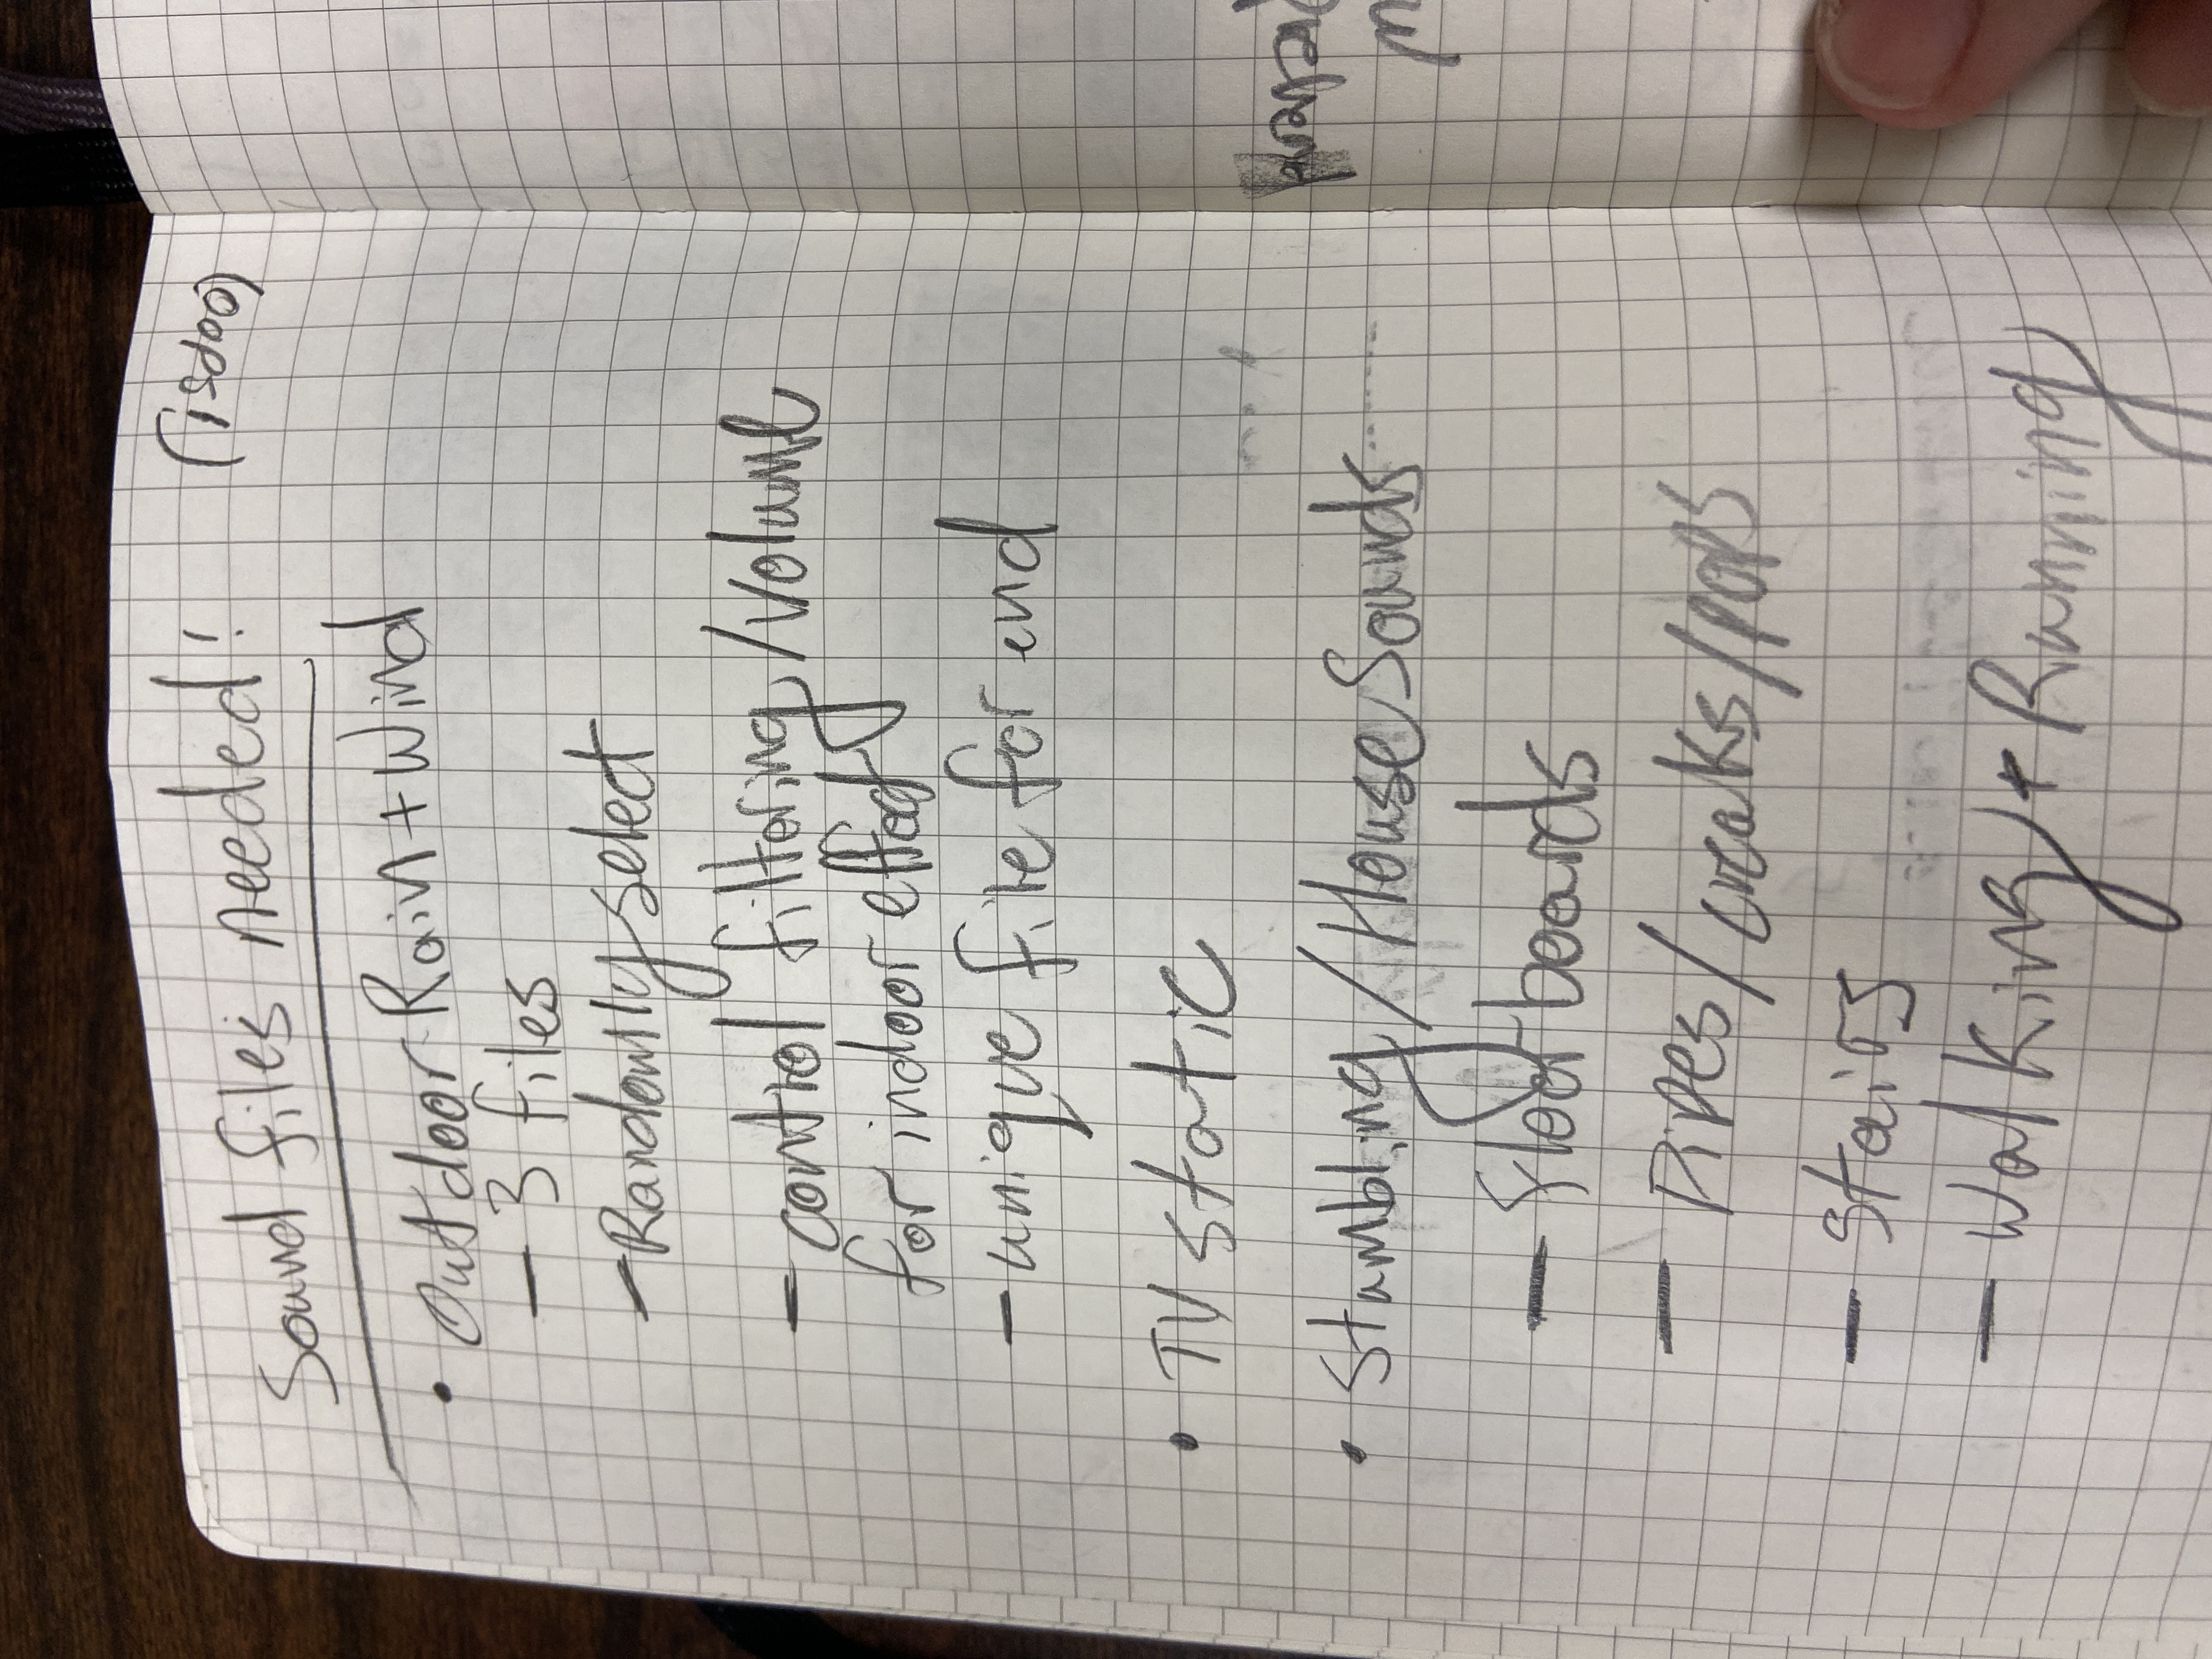 Sound files needed!
• Outdoor Rain + Wind
- 3 files
- Randomly select
- control filtering/volume
for indoor effect
- unique file for end
• TV static
• Stumbling/House Sounds
- floorboards
- Pipes/creaks/pops
- stairs
- Walking + Running